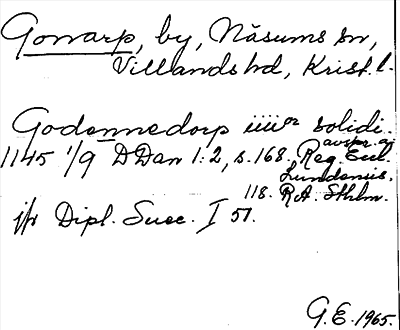 Gonarp, by, Näsums sn,
Villands hd, Krist. l.
Godennedorp iiiior solidi.
1145 1/9 DDan 1:2, s. 168, avskr. af Reg. Eccl.
Lundensis,
118. RA. Sthlm.
jfr Dipl. Suec. I 51.
G.E. 1965.